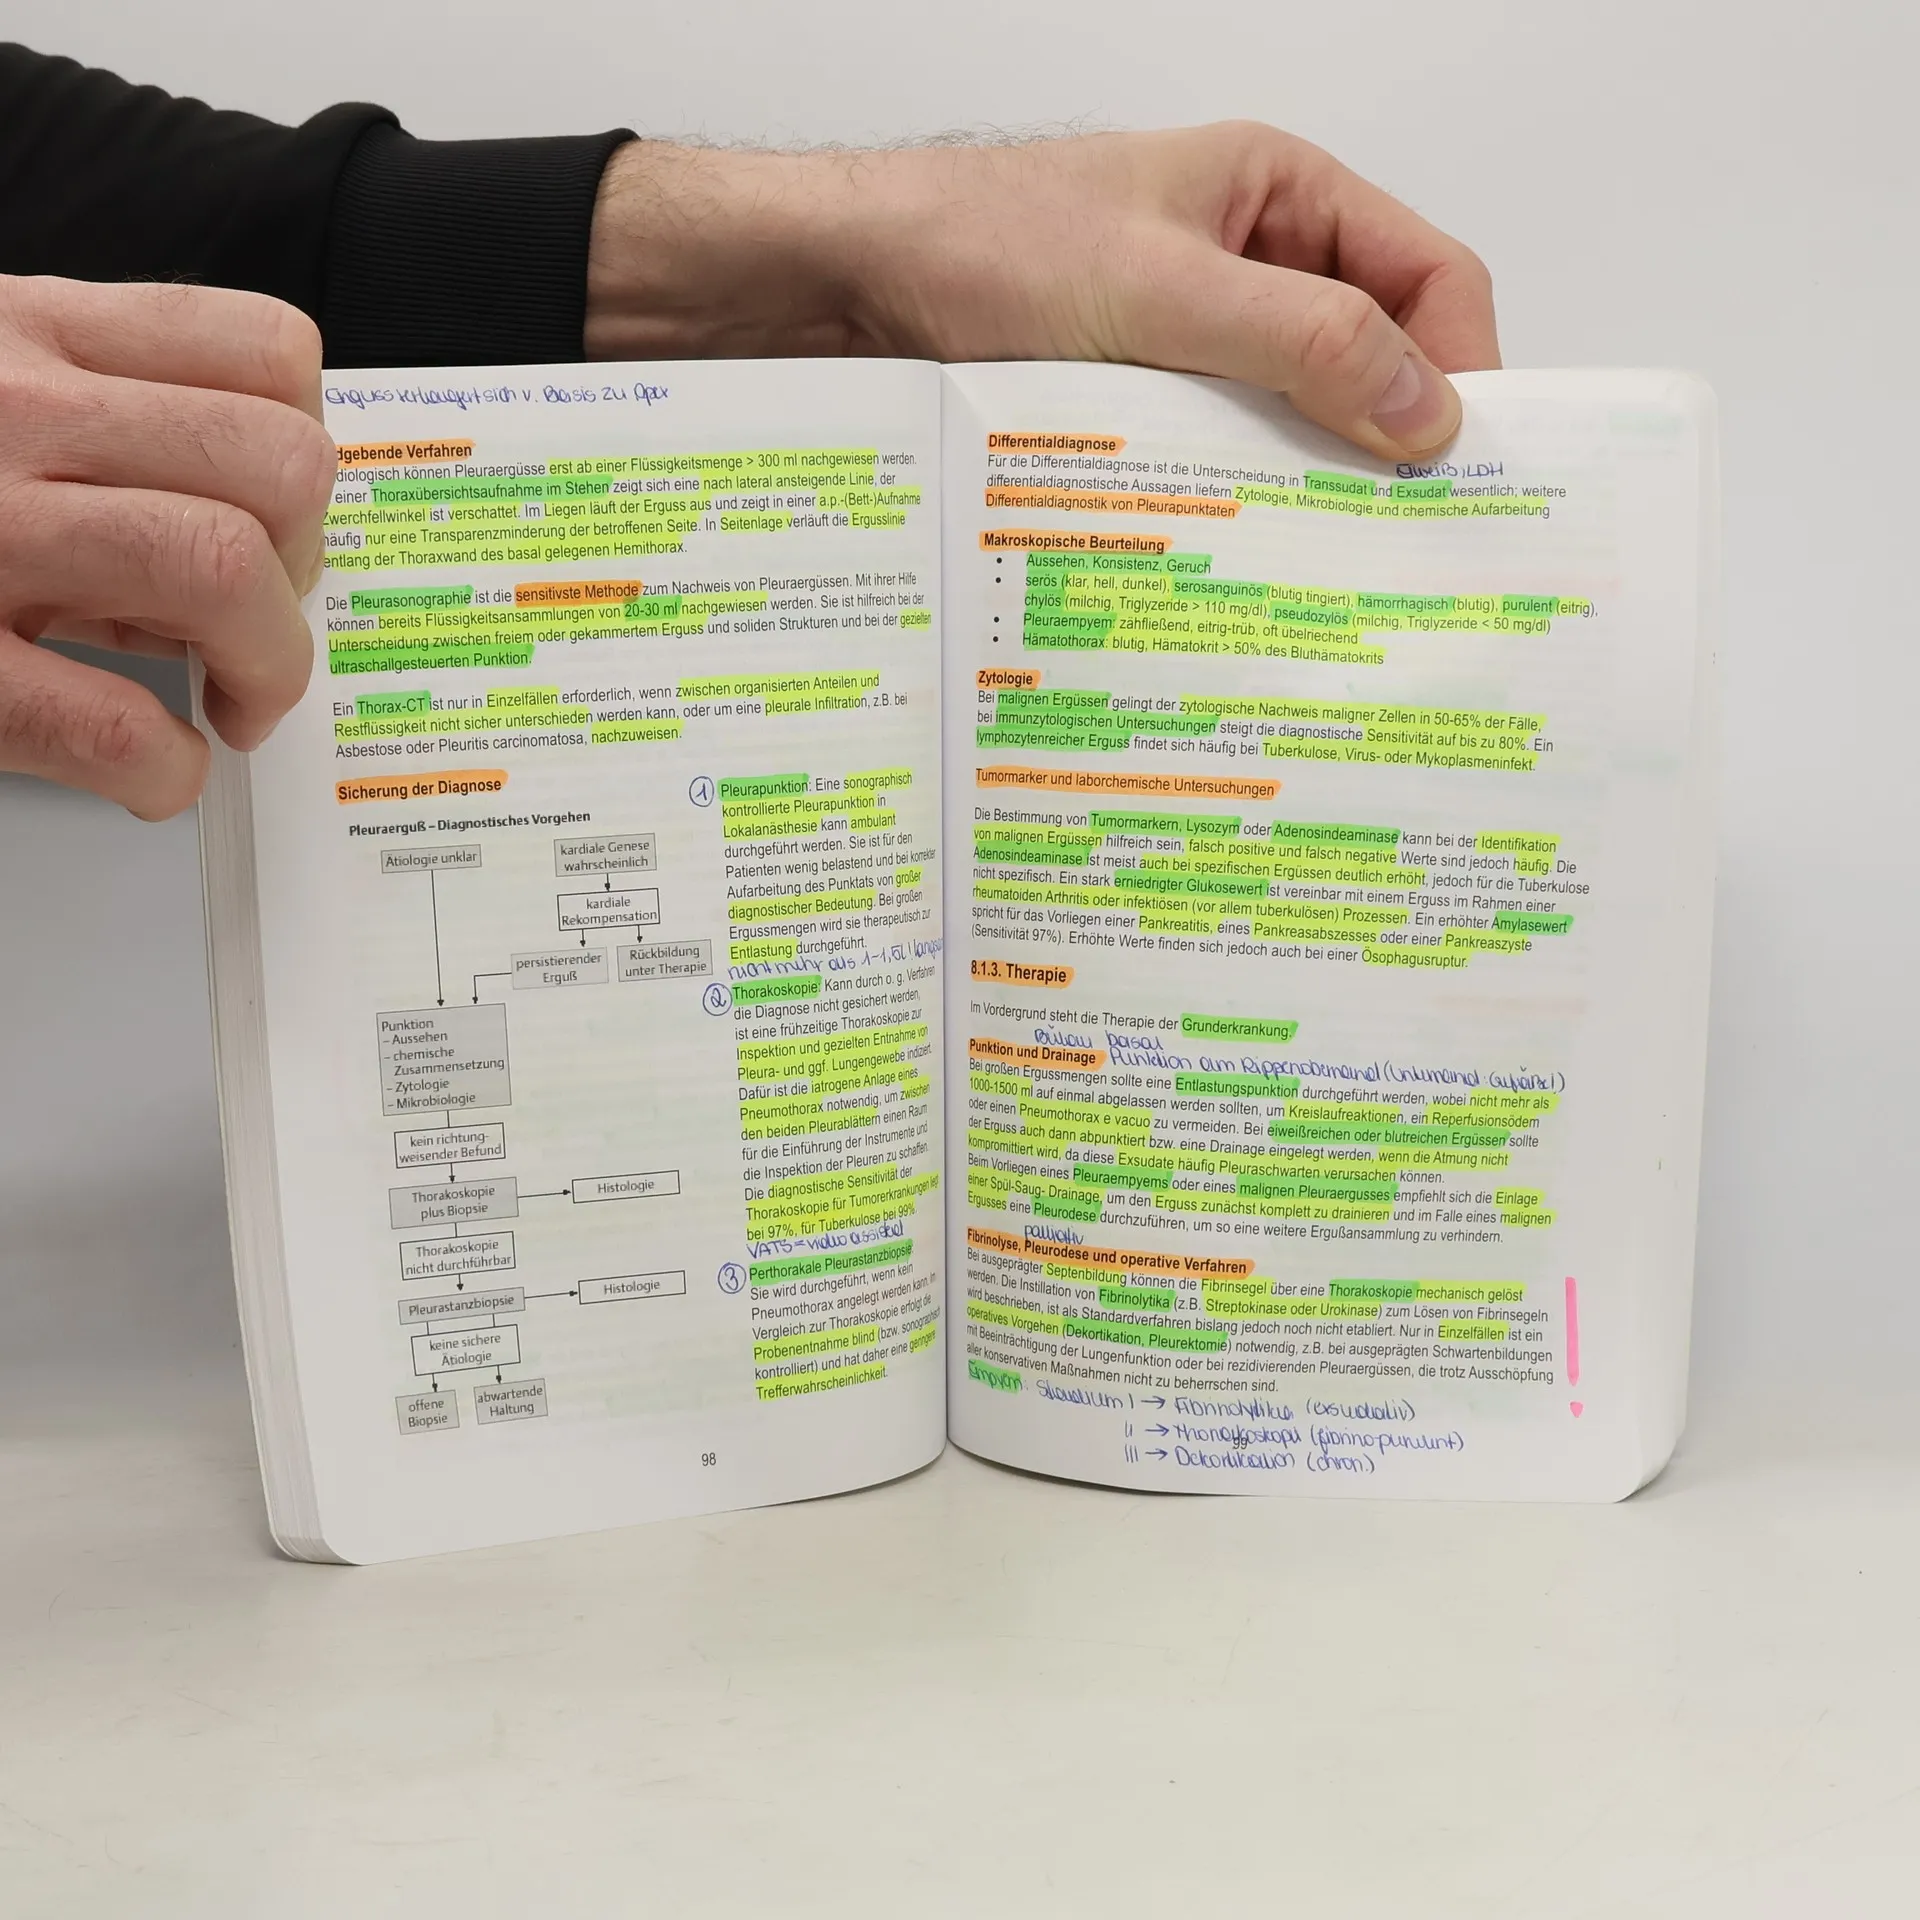 Erguss verlangert sich v. Basis zu Apex
dgebende Verfahren
diologisch können Pleuraergüsse erst ab einer Flüssigkeitsmenge > 300 ml nachgewiesen werden.
einer Thoraxübersichtsaufnahme im Stehen zeigt sich eine nach lateral ansteigende Linie, der
Zwerchfellwinkel ist verschattet. Im Liegen läuft der Erguss aus und zeigt in einer a.p.-(Bett-)Aufnahme
häufig nur eine Transparenzminderung der betroffenen Seite. In Seitenlage verläuft die Ergusslinie
entlang der Thoraxwand des basal gelegenen Hemithorax.
Die Pleurasonographie ist die sensitivste Methode zum Nachweis von Pleuraergüssen. Mit ihrer Hilfe
können bereits Flüssigkeitsansammlungen von 20-30 ml nachgewiesen werden. Sie ist hilfreich bei der
Unterscheidung zwischen freiem oder gekammertem Erguss und soliden Strukturen und bei der gezielten
ultraschallgesteuerten Punktion.
Ein Thorax-CT ist nur in Einzelfällen erforderlich, wenn zwischen organisierten Anteilen und
Restflüssigkeit nicht sicher unterschieden werden kann, oder um eine pleurale Infiltration, z.B. bei
Asbestose oder Pleuritis carcinomatosa, nachzuweisen.
Sicherung der Diagnose
Pleuraerguß – Diagnostisches Vorgehen
Ätiologie unklar
kardiale Genese
wahrscheinlich
kardiale
Rekompensation
persistierender
Erguß
Rückbildung
unter Therapie
Punktion
– Aussehen
– chemische
Zusammensetzung
– Zytologie
– Mikrobiologie
kein richtung-
weisender Befund
Thorakoskopie
plus Biopsie
Histologie
Thorakoskopie
nicht durchführbar
Pleurastanzbiopsie
Histologie
keine sichere
Ätiologie
offene
Biopsie
abwartende
Haltung
1 Pleurapunktion: Eine sonographisch
kontrollierte Pleurapunktion in
Lokalanästhesie kann ambulant
durchgeführt werden. Sie ist für den
Patienten wenig belastend und bei korrekter
Aufarbeitung des Punktats von großer
diagnostischer Bedeutung. Bei großen
Ergussmengen wird sie therapeutisch zur
Entlastung durchgeführt.
nicht mehr als 1-1,5L! langsam
2 Thorakoskopie: Kann durch o. g. Verfahren
die Diagnose nicht gesichert werden,
ist eine frühzeitige Thorakoskopie zur
Inspektion und gezielten Entnahme von
Pleura- und ggf. Lungengewebe indiziert.
Dafür ist die iatrogene Anlage eines
Pneumothorax notwendig, um zwischen
den beiden Pleurablättern einen Raum
für die Einführung der Instrumente und
die Inspektion der Pleuren zu schaffen.
Die diagnostische Sensitivität der
Thorakoskopie für Tumorerkrankungen liegt
bei 97%, für Tuberkulose bei 99%
VATS = video assisted
3 Perthorakale Pleurastanzbiopsie:
Sie wird durchgeführt, wenn kein
Pneumothorax angelegt werden kann. Im
Vergleich zur Thorakoskopie erfolgt die
Probenentnahme blind (bzw. sonographisch
kontrolliert) und hat daher eine geringere
Trefferwahrscheinlichkeit.
98
Differentialdiagnose
Eiweiß, LDH
Für die Differentialdiagnose ist die Unterscheidung in Transsudat und Exsudat wesentlich; weitere
differentialdiagnostische Aussagen liefern Zytologie, Mikrobiologie und chemische Aufarbeitung
Differentialdiagnostik von Pleurapunktaten
Makroskopische Beurteilung
• Aussehen, Konsistenz, Geruch
• serös (klar, hell, dunkel), serosanguinös (blutig tingiert), hämorrhagisch (blutig), purulent (eitrig),
chylös (milchig, Triglyzeride > 110 mg/dl), pseudozylös (milchig, Triglyzeride < 50 mg/dl)
• Pleuraempyem: zähfließend, eitrig-trüb, oft übelriechend
• Hämatothorax: blutig, Hämatokrit > 50% des Bluthämatokrits
Zytologie
Bei malignen Ergüssen gelingt der zytologische Nachweis maligner Zellen in 50-65% der Fälle,
bei immunzytologischen Untersuchungen steigt die diagnostische Sensitivität auf bis zu 80%. Ein
lymphozytenreicher Erguss findet sich häufig bei Tuberkulose, Virus- oder Mykoplasmeninfekt.
Tumormarker und laborchemische Untersuchungen
Die Bestimmung von Tumormarkern, Lysozym oder Adenosindeaminase kann bei der Identifikation
von malignen Ergüssen hilfreich sein, falsch positive und falsch negative Werte sind jedoch häufig. Die
Adenosindeaminase ist meist auch bei spezifischen Ergüssen deutlich erhöht, jedoch für die Tuberkulose
nicht spezifisch. Ein stark erniedrigter Glukosewert ist vereinbar mit einem Erguss im Rahmen einer
rheumatoiden Arthritis oder infektiösen (vor allem tuberkulösen) Prozessen. Ein erhöhter Amylasewert
spricht für das Vorliegen einer Pankreatitis, eines Pankreasabszesses oder einer Pankreaszyste
(Sensitivität 97%). Erhöhte Werte finden sich jedoch auch bei einer Ösophagusruptur.
8.1.3. Therapie
Im Vordergrund steht die Therapie der Grunderkrankung.
Bülau basal
Punktion und Drainage Punktion am Rippenoberrand (Unterrand: Gefäße!)
Bei großen Ergussmengen sollte eine Entlastungspunktion durchgeführt werden, wobei nicht mehr als
1000-1500 ml auf einmal abgelassen werden sollten, um Kreislaufreaktionen, ein Reperfusionsödem
oder einen Pneumothorax e vacuo zu vermeiden. Bei eiweißreichen oder blutreichen Ergüssen sollte
der Erguss auch dann abpunktiert bzw. eine Drainage eingelegt werden, wenn die Atmung nicht
kompromittiert wird, da diese Exsudate häufig Pleuraschwarten verursachen können.
Beim Vorliegen eines Pleuraempyems oder eines malignen Pleuraergusses empfiehlt sich die Einlage
einer Spül-Saug- Drainage, um den Erguss zunächst komplett zu drainieren und im Falle eines malignen
Ergusses eine Pleurodese durchzuführen, um so eine weitere Ergußansammlung zu verhindern.
palliativ
Fibrinolyse, Pleurodese und operative Verfahren
Bei ausgeprägter Septenbildung können die Fibrinsegel über eine Thorakoskopie mechanisch gelöst
werden. Die Instillation von Fibrinolytika (z.B. Streptokinase oder Urokinase) zum Lösen von Fibrinsegeln
wird beschrieben, ist als Standardverfahren bislang jedoch noch nicht etabliert. Nur in Einzelfällen ist ein
operatives Vorgehen (Dekortikation, Pleurektomie) notwendig, z.B. bei ausgeprägten Schwartenbildungen
mit Beeinträchtigung der Lungenfunktion oder bei rezidivierenden Pleuraergüssen, die trotz Ausschöpfung
aller konservativen Maßnahmen nicht zu beherrschen sind.
Empyem: Stadium I → Fibrinolytika (exsudativ)
II → Thorakoskopi (fibrino-purulent)
III → Dekortikation (chron.)
99